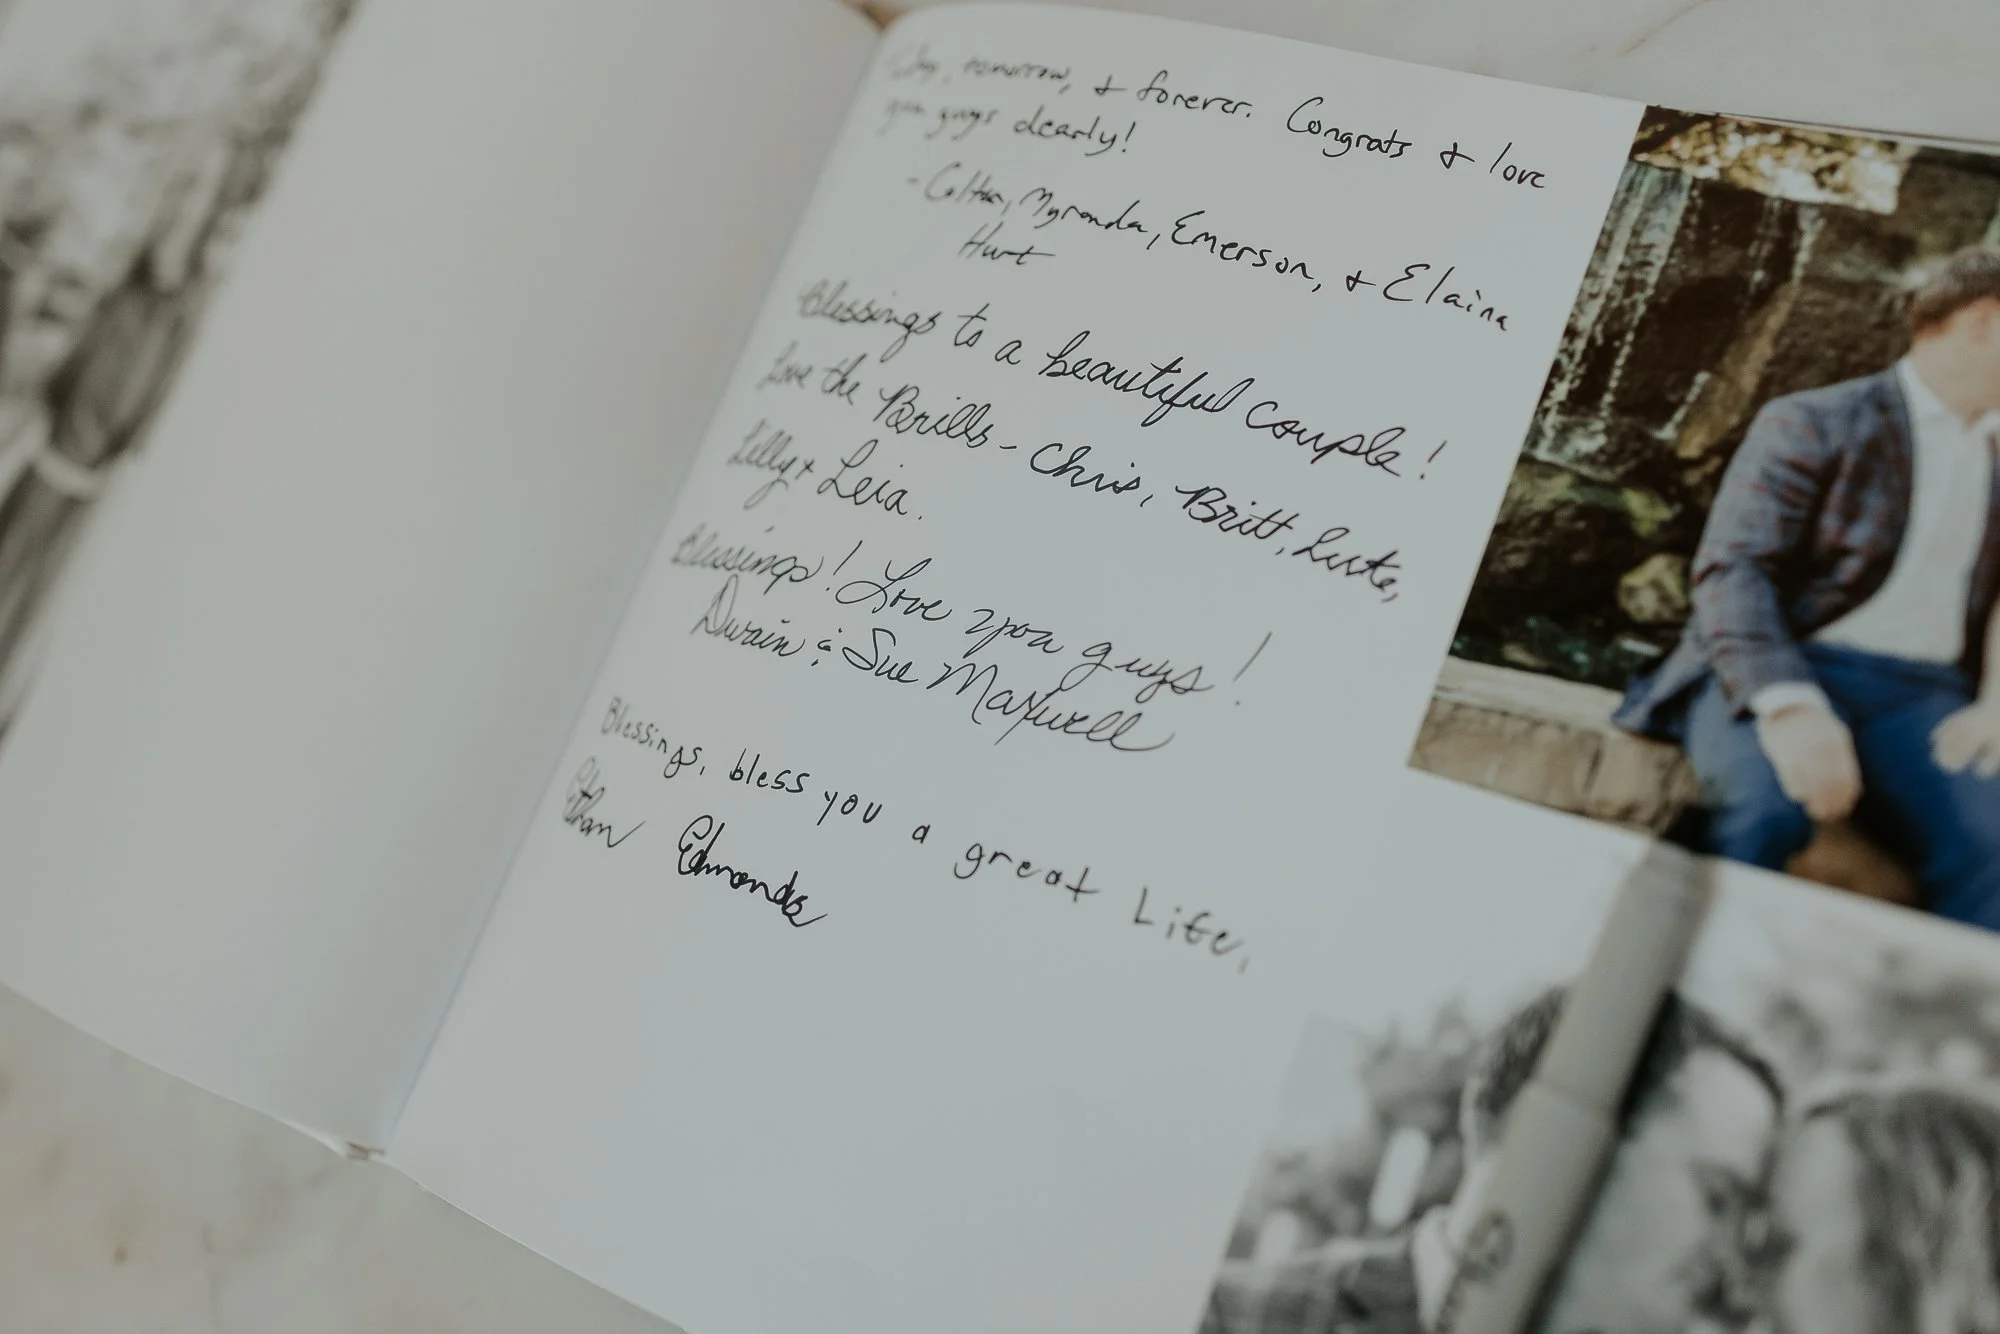 tomorrow, & forever. Congrats & love
you guys dearly!
- Colton, Myranda, Emerson, & Elaina
Hurt
Blessings to a beautiful couple!
Love the Brills - Chris, Britt, Luke,
Lilly & Leia.
Blessings! Love you guys!
Dwain & Sue Maxwell
Blessings, bless you a great Life,
Ethan Edmonds